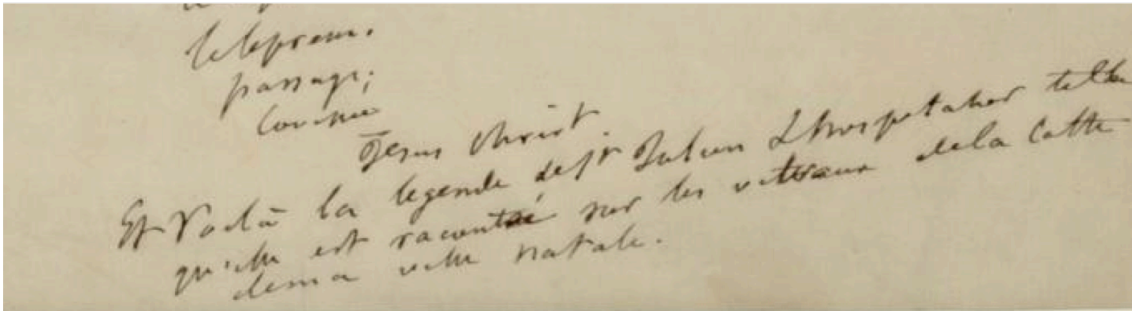 le lepreux.
passage;
Jesus Christ
Et Voilà la legende de st Julien L'hospitalier telle
qu'elle est racontée sur les vitraux de la Cathe
de ma ville natale.